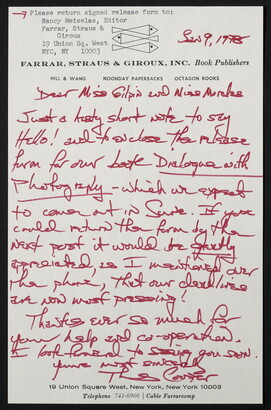 Please return signed release form to:
Nancy Meiselas, Editor
Farrar, Straus &
Giroux
19 Union Sq. West
NYC, NY 10003
Jan 9, 1978
FARRAR, STRAUS & GIROUX, INC. Book Publishers
HILL & WANG NOONDAY PAPERBACKS OCTAGON BOOKS
Dear Miss Gilpin and Miss
Just a hasty short note to say
Hello! and to enclose the release
form for our book Dialogue with
Photography - which we expect
to come out in June. If you
could return the form by the
next post it would be greatly
appreciated, as I mentioned over
the phone, that our deadlines
are now most pressing!
Thanks ever so much for
your help and co-operation.
I look forward to seeing you soon.
yours most sincerely
Cooper
19 Union Square West, New York, New York 10003
Telephone 741-6900 | Cable Farrarcomp